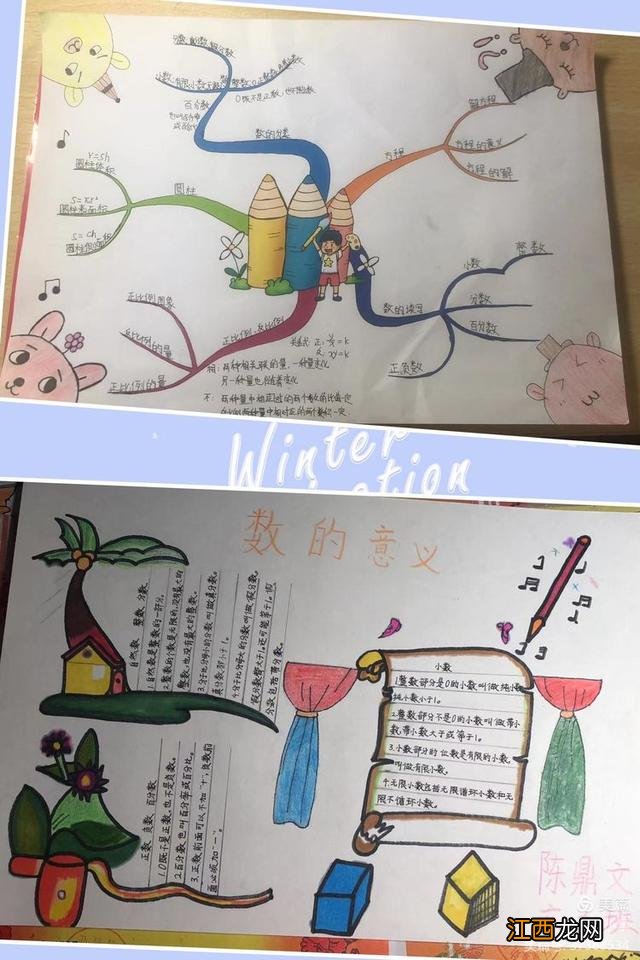 百分数
数的分类
0既不是正数,也不是负数
方程
解方程
方程的意义
方程的解
圆柱
V=Sh
圆柱体积
S=πr²
圆柱表面积
S=Ch
正比例图象
反比例的量
正比例的量
正比例、反比例
关系式:正:y/x=k
反:xy=k
相:两种相关联的量,一种量变化
另一种量也随着变化
不:两种量中相对应的两个数的比值一定
数的读写
小数
整数
分数
百分数
正负数
Winter
数的意义
自然数 整数 分数
1.自然数是整数的一部分。
2.整数的个数是无限的,没有最大的
整数,也没有最大的整数。
3.分子比分母小的分数叫做真分数。
真分数都小于1。
4.分子比分母大的分数叫做假分数。
假分数都大于1。还可能等于1。假
分数包括带分数。
正数 负数 百分数
1.0既不是正数,也不是负数。
2.百分数也叫百分率或百分比。
3.正数前面可以不加“+”,负数前
面必须加“-”。
小数
1.整数部分是0的小数叫做纯小数
纯小数小于1。
2.整数部分不是0的小数叫做带小
数,带小数大于或等于1。
3.小数部分的位数是有限的小数,
叫做有限小数。
4.无限小数包括无限循环小数和无
限不循环小数。
陈鼎文
美篇
江西龙网